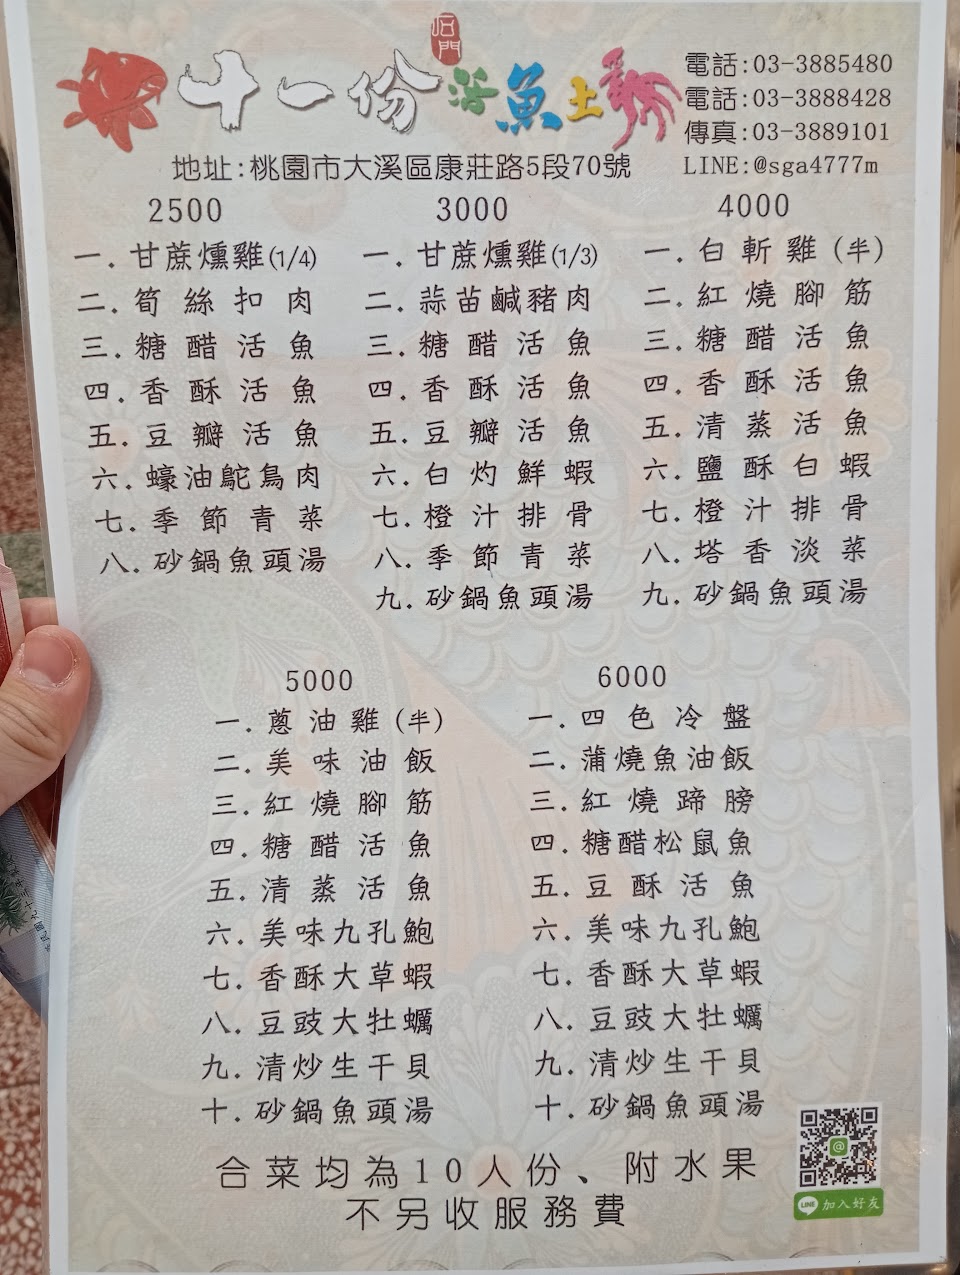 石門
十一份 活魚土雞
電話:03-3885480
電話:03-3888428
傳真:03-3889101
LINE:@sga4777m
地址:桃園市大溪區康莊路5段70號
2500
一.甘蔗燻雞(1/4)
二.筍絲扣肉
三.糖醋活魚
四.香酥活魚
五.豆瓣活魚
六.蠔油鴕鳥肉
七.季節青菜
八.砂鍋魚頭湯
3000
一.甘蔗燻雞(1/3)
二.蒜苗鹹豬肉
三.糖醋活魚
四.香酥活魚
五.豆瓣活魚
六.白灼鮮蝦
七.橙汁排骨
八.季節青菜
九.砂鍋魚頭湯
4000
一.白斬雞(半)
二.紅燒腳筋
三.糖醋活魚
四.香酥活魚
五.清蒸活魚
六.鹽酥白蝦
七.橙汁排骨
八.塔香淡菜
九.砂鍋魚頭湯
5000
一.蔥油雞(半)
二.美味油飯
三.紅燒腳筋
四.糖醋活魚
五.清蒸活魚
六.美味九孔鮑
七.香酥大草蝦
八.豆豉大牡蠣
九.清炒生干貝
十.砂鍋魚頭湯
6000
一.四色冷盤
二.蒲燒魚油飯
三.紅燒蹄膀
四.糖醋松鼠魚
五.豆酥活魚
六.美味九孔鮑
七.香酥大草蝦
八.豆豉大牡蠣
九.清炒生干貝
十.砂鍋魚頭湯
合菜均為10人份、附水果
不另收服務費
LINE 加入好友